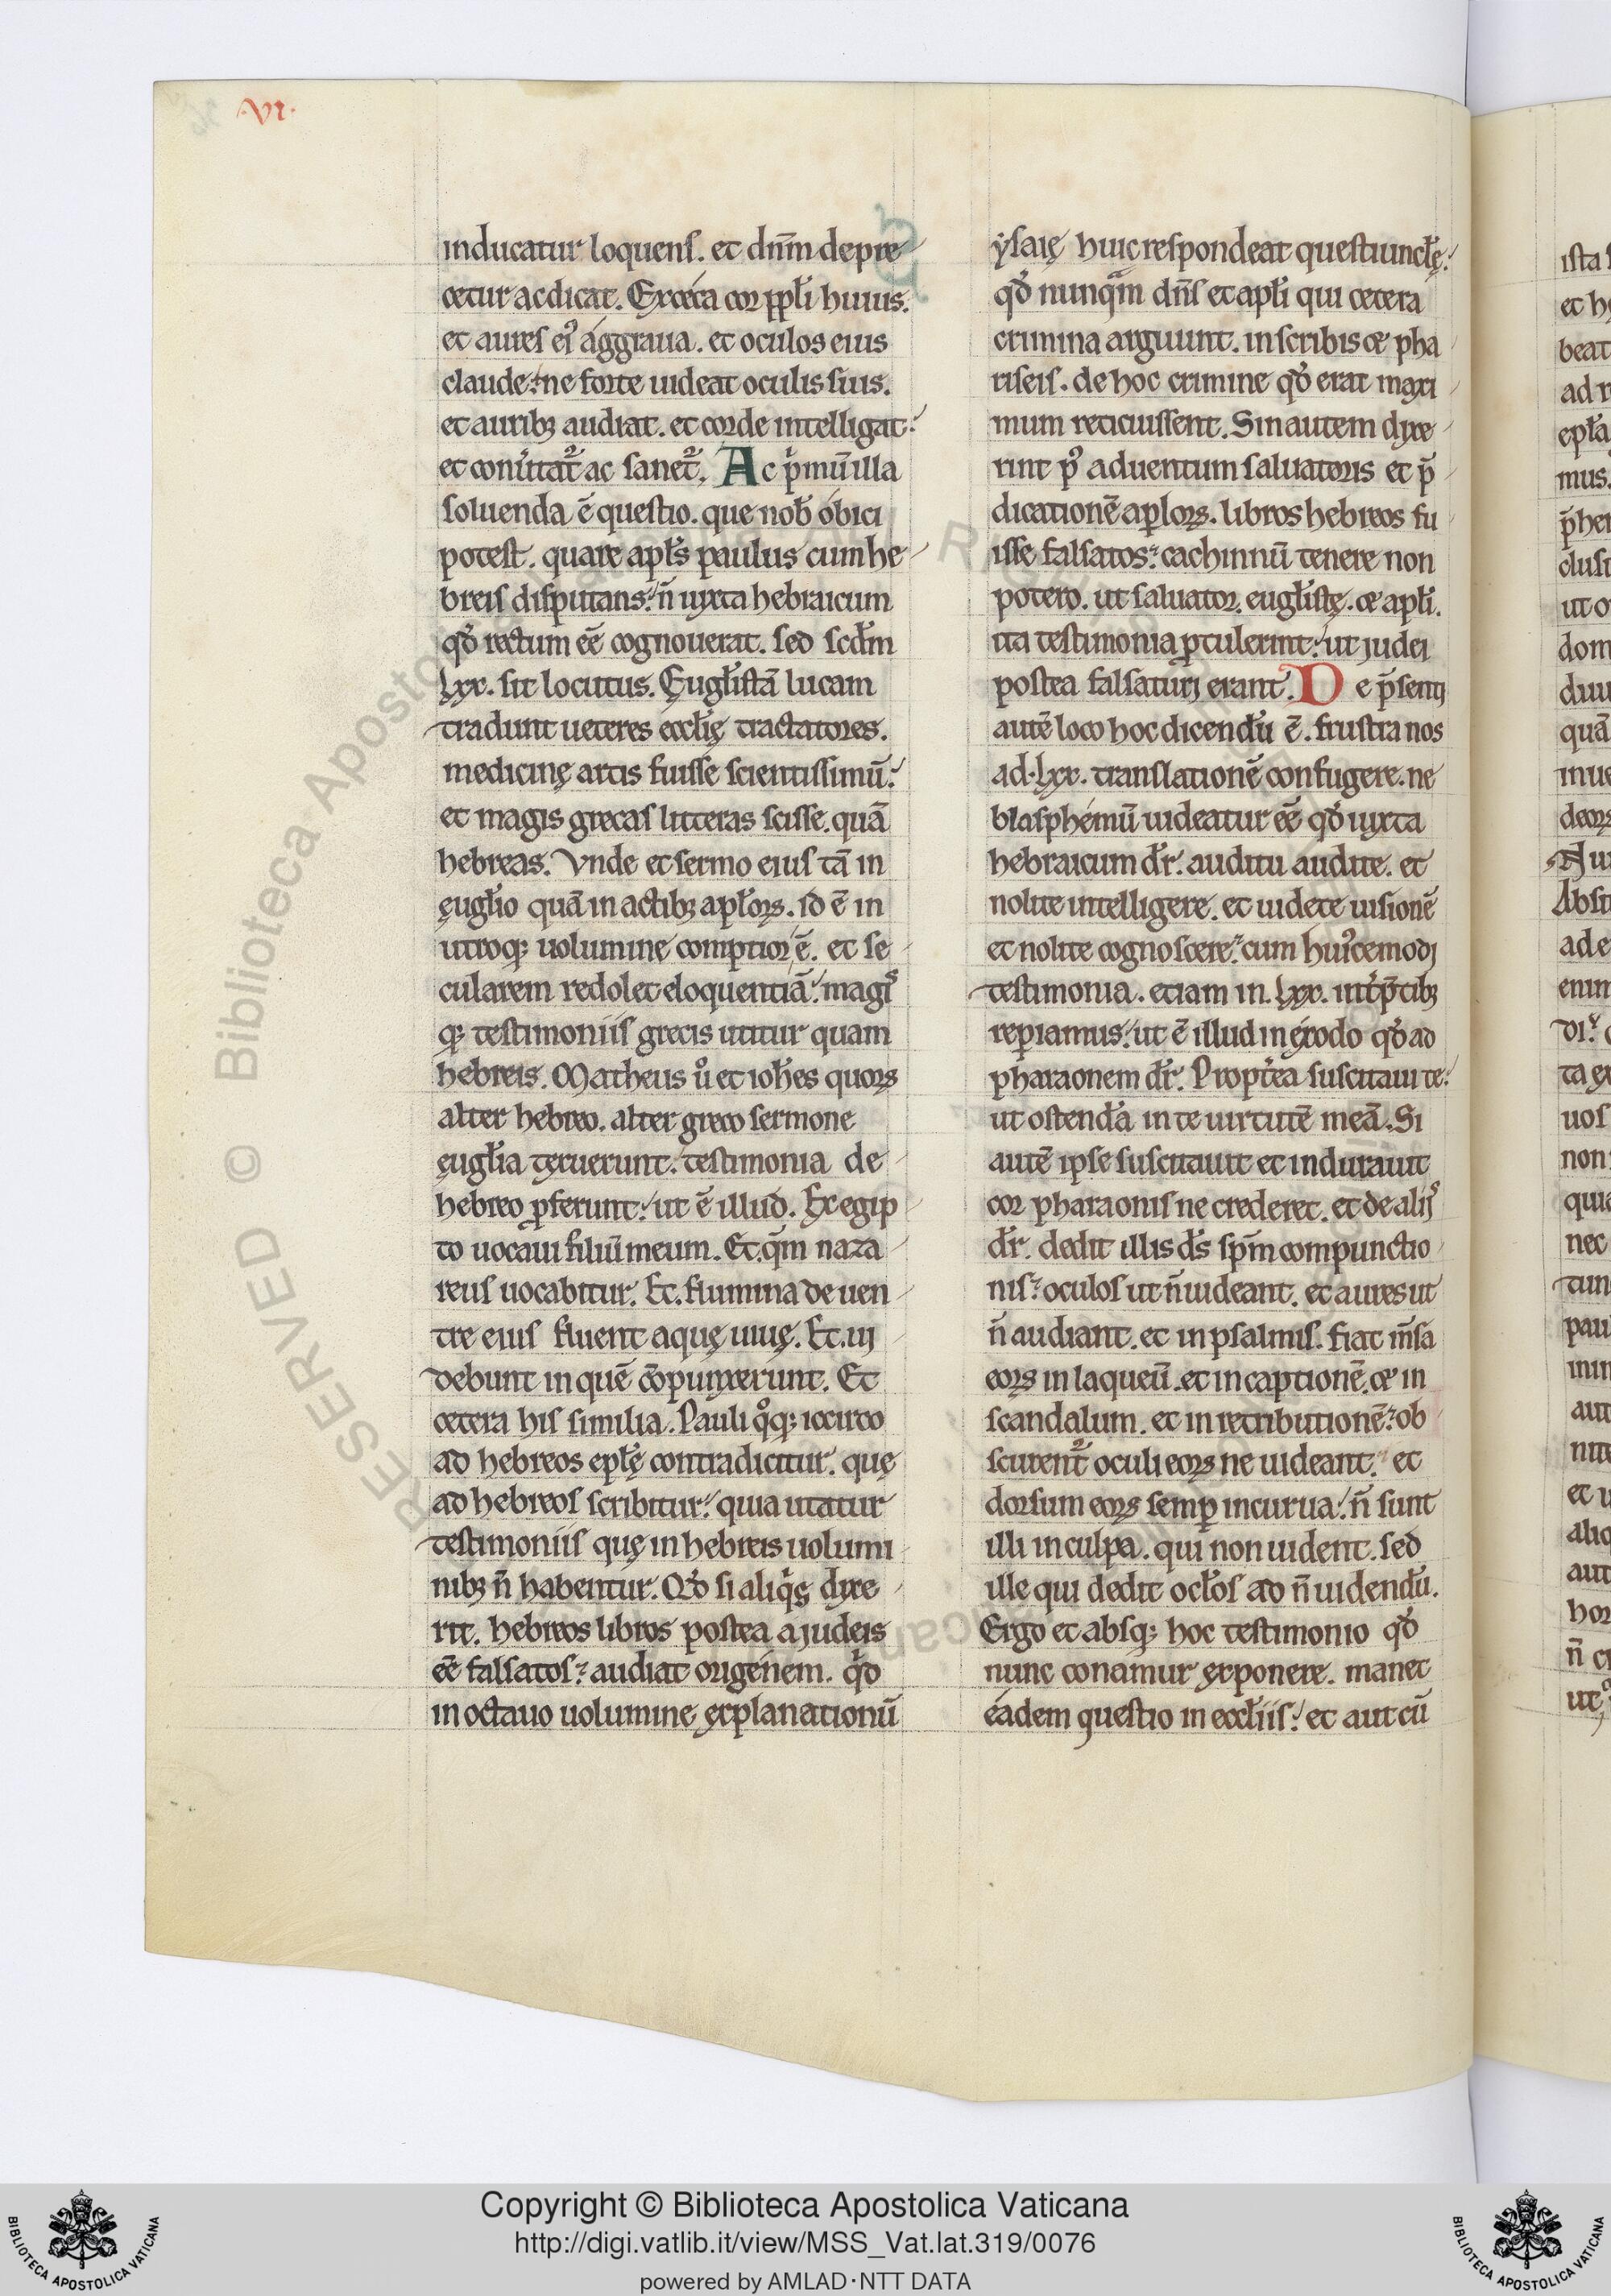 ·VI·
inducatur loquens. et dn̄m depre
cetur ac dicat. Excéca cor ppłi huius.
et aures eiꝰ ággraua. et oculos eius
claude. ne forte uideat oculis suis.
et auribꝫ audiat. et corde intelligat.
et conūtat᷑ ac sanet᷑. Ac pͥmū illa
soluenda ē questio. que nob̄ óbici
potest. quare apłs paulus cum he
breis disputans. n̄ iuxta hebraicum
qď rectum eē cognouerat. sed scďm
lxx. sit locutus. Eugłistā lucam
tradunt ueteres ecclię tractatores.
medicinę artis fuisse scientissimū.
et magis grecas litteras scisse. quā
hebreas. Vnde et sermo eius tā in
euglio quā in actibꝫ apłoꝝ. id ē in
utroqꝫ uolumine comptior ē. et se
cularem redolet eloquentiā. magiˢ
qꝫ testimoniis grecis utitur quam
hebreis. Matheus ůet ioħes quoꝝ
alter hebreo. alter greco sermone
ęugłia tęxuerunt. testimonia de
hebreo ꝓferunt. ut ē illud. Ex egip
to uocaui filiū meum. Et. qm̄ naza
reus uocabitur. Et. flumina de uen
tre eius fluent aquę uiuę. Et. ui
debunt in quē cōpunxerunt. Et
cetera his similia. Pauli qͦqꝫ iccirco
ad hebreos epłę contradicitur. quę
ad hebreos scribitur. quia utatur
testimoniis quę in hebreis uolumi
nibꝫ n̄ habentur. Qď si aliqͥs dixe
rit. hebreos libros postea a judeis
eē falsatos. audiat origenem. qͥd
in octauo uolumine explanationū
ẏsaię huic respondeat questiuncłę.
qď nunqͣm dn̄s et apłi qui cetera
crimina arguunt. in scribis et pha
riseis. de hoc crimine qď erat maxi
mum reticuissent. Sin autem dixe
rint pꝰ aduentum saluatoris et p̄
dicationē apłoꝝ. libros hebreos fu
isse falsatos. cachinnū tenere non
potero. ut saluator. eugłistę. et apłi.
ita testimonia ꝓtulerint. ut judei
postea falsaturi erant. De p̄senti
autē loco hoc dicendū ē. frustra nos
ad. lxx. translationē confugere. ne
blasphémū uideatur eē qď iuxta
hebraicum dr̄. auditu audite. et
nolite intelligere. et uidete uisionē
et nolite cognoscere. cum huiꝰcemodi
testimonia. etiam in. lxx. intͥp̄tibꝫ
repiamus. ut ē illud in éxodo qď ad
pharaonem dr̄. Proptͥea suscitaui te.
ut ostendā in te uirtutē meā. Si
autē ipse suscitauit et indurauit
cor pharaonis ne crederet. et de aliiˢ
dr̄. dedit illis ds̄ spm̄ compunctio
nis. oculos ut n̄ uideant. et aures ut
n̄ audiant. et in psalmis. fiat m̄sa
eoꝝ in laqueū. et in captionē. et in
scandalum. et in retributionē. ob
scurent᷑ oculi eoꝝ ne uideant. et
dorsum eoꝝ semꝑ incurua. n̄ sunt
illi in culpa. qui non uident. sed
ille qui dedit ocłos ad n̄ uidendū.
Ergo et absqꝫ hoc testimonio qď
nunc conamur exponere. manet
éadem questio in ecclīis. et aut cū
Copyright © Biblioteca Apostolica Vaticana
http://digi.vatlib.it/view/MSS_Vat.lat.319/0076
powered by AMLAD·NTT DATA
BIBLIOTECA APOSTOLICA VATICANA
BIBLIOTECA APOSTOLICA VATICANA